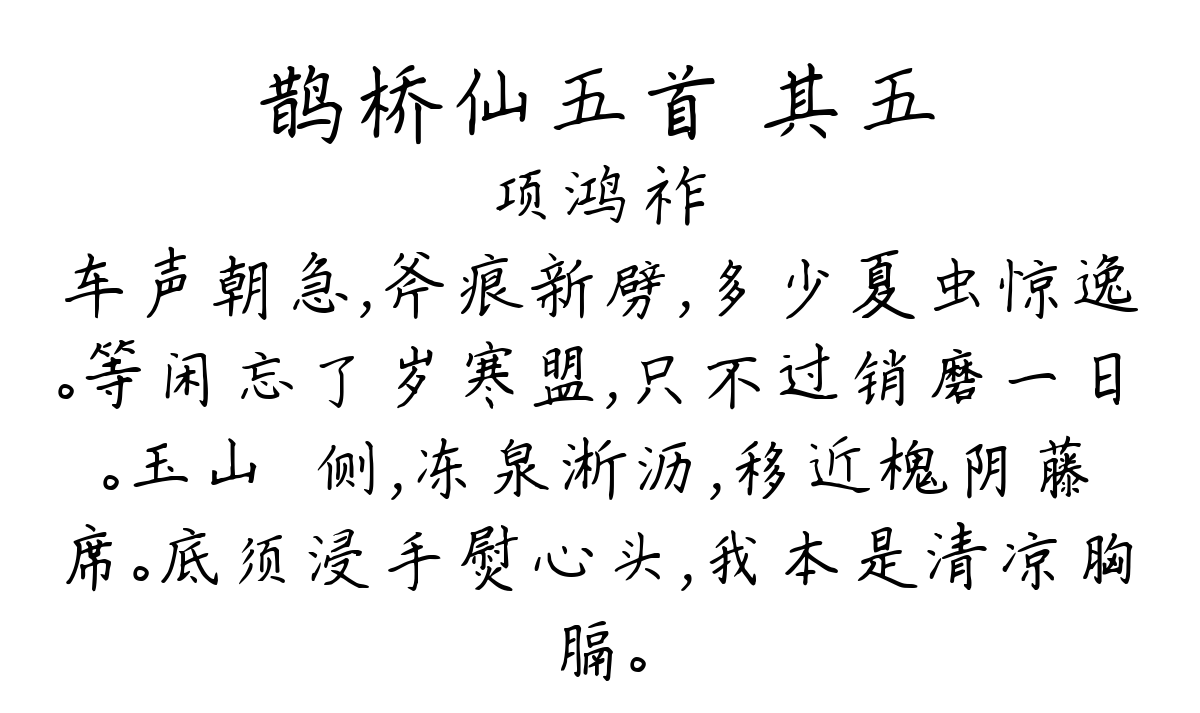 鹊桥仙五首 其五
项鸿祚
车声朝急,斧痕新劈,多少夏虫惊逸
。等闲忘了岁寒盟,只不过销磨一日
。玉山 侧,冻泉淅沥,移近槐阴藤
席。底须浸手熨心头,我本是清凉胸
膈。